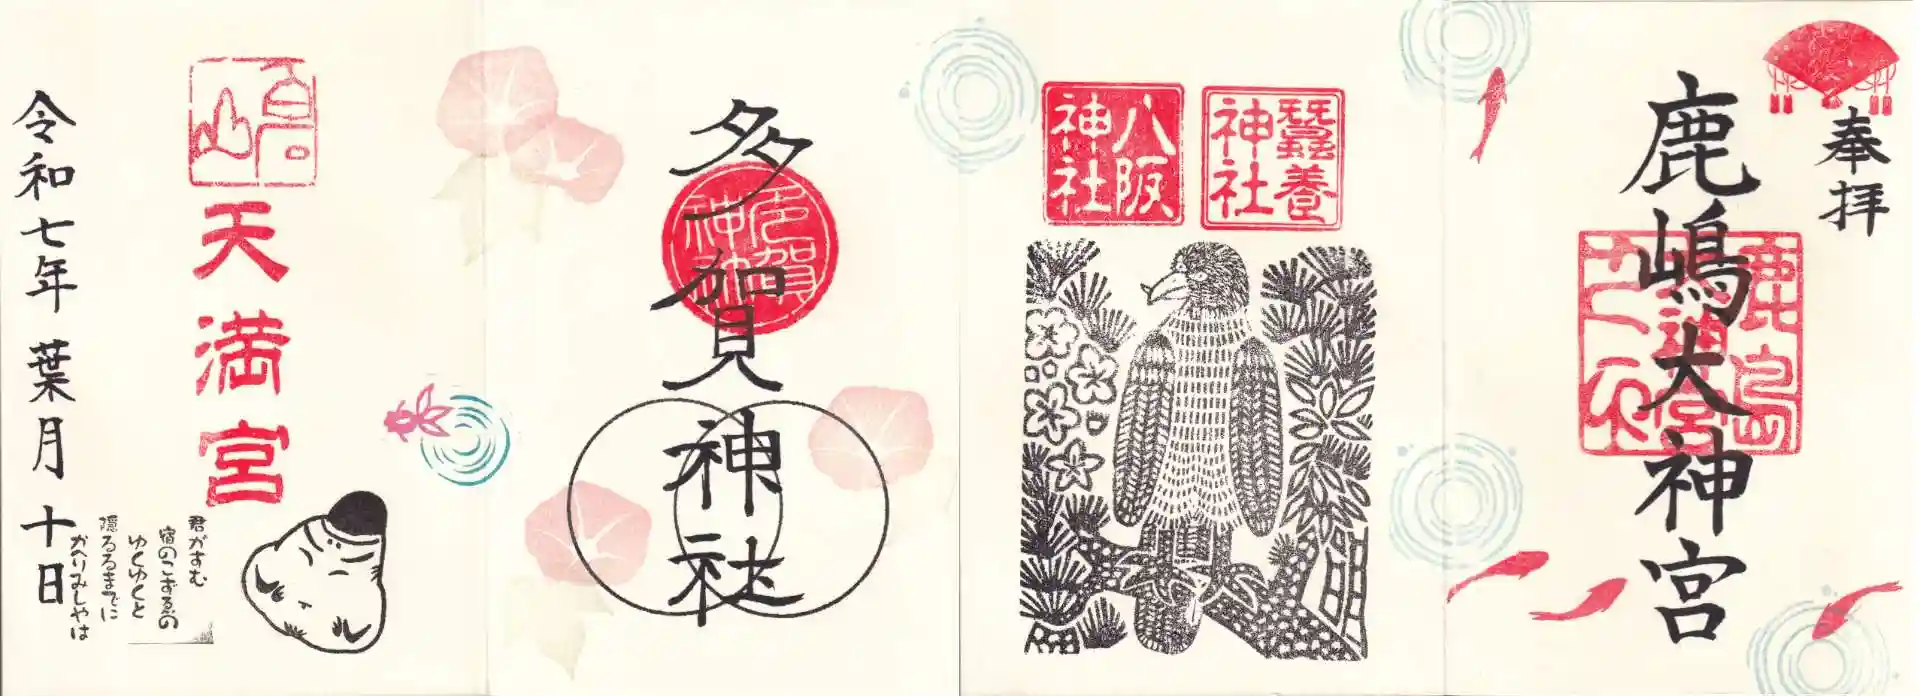 奉拝
鹿嶋大神宮
鹿島
蠶養神社
八阪神社
多賀神社
天満宮
君がすむ
宿のこずゑの
ゆくゆくと
隠るるまでに
かへりみしやは
令和七年葉月十日